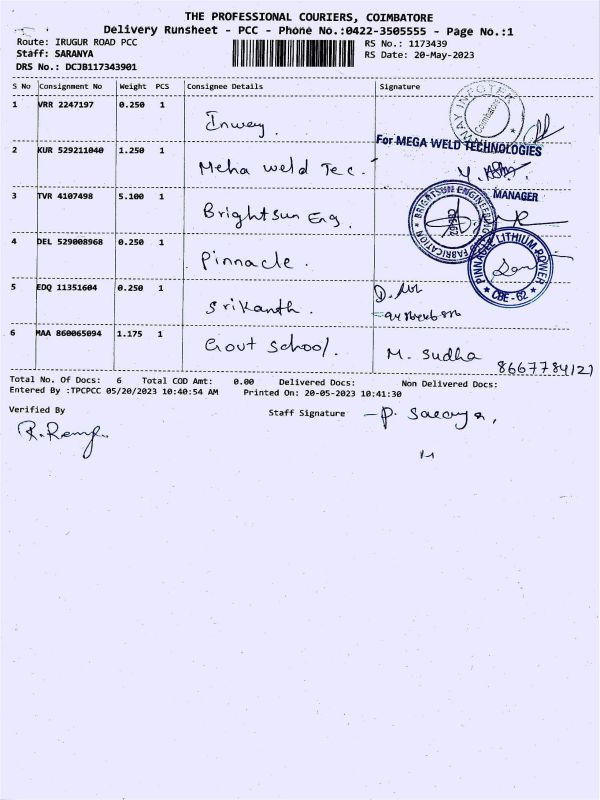 THE PROFESSIONAL COURIERS, COIMBATORE
Delivery Runsheet - PCC - Phone No.:0422-3505555 - Page No.:1
Route: IRUGUR ROAD PCC RS No.: 1173439
Staff: SARANYA RS Date: 20-May-2023
DRS No.: DCJB117343901
S No Consignment No Weight PCS Consignee Details Signature
1 VRR 2247197 0.250 1
Inway.
INFOTEK Coimbatore
2 KUR 529211040 1.250 1
For MEGA WELD TECHNOLOGIES
Meha weld Tec.
MANAGER
3 TVR 4107498 5.100 1
Brightsun Eng.
BRIGHTSUN ENGINEERING FABRICATION
4 DEL 529008968 0.250 1
Pinnacle.
PINNACLE LITHIUM POWER CBE - 62
5 EDQ 11351604 0.250 1
Srikanth.
6 MAA 860065094 1.175 1
Govt School. M. Sudha 8667784121
Total No. Of Docs: 6 Total COD Amt: 0.00 Delivered Docs: Non Delivered Docs:
Entered By :TPCPCC 05/20/2023 10:40:54 AM Printed On: 20-05-2023 10:41:30
Verified By Staff Signature